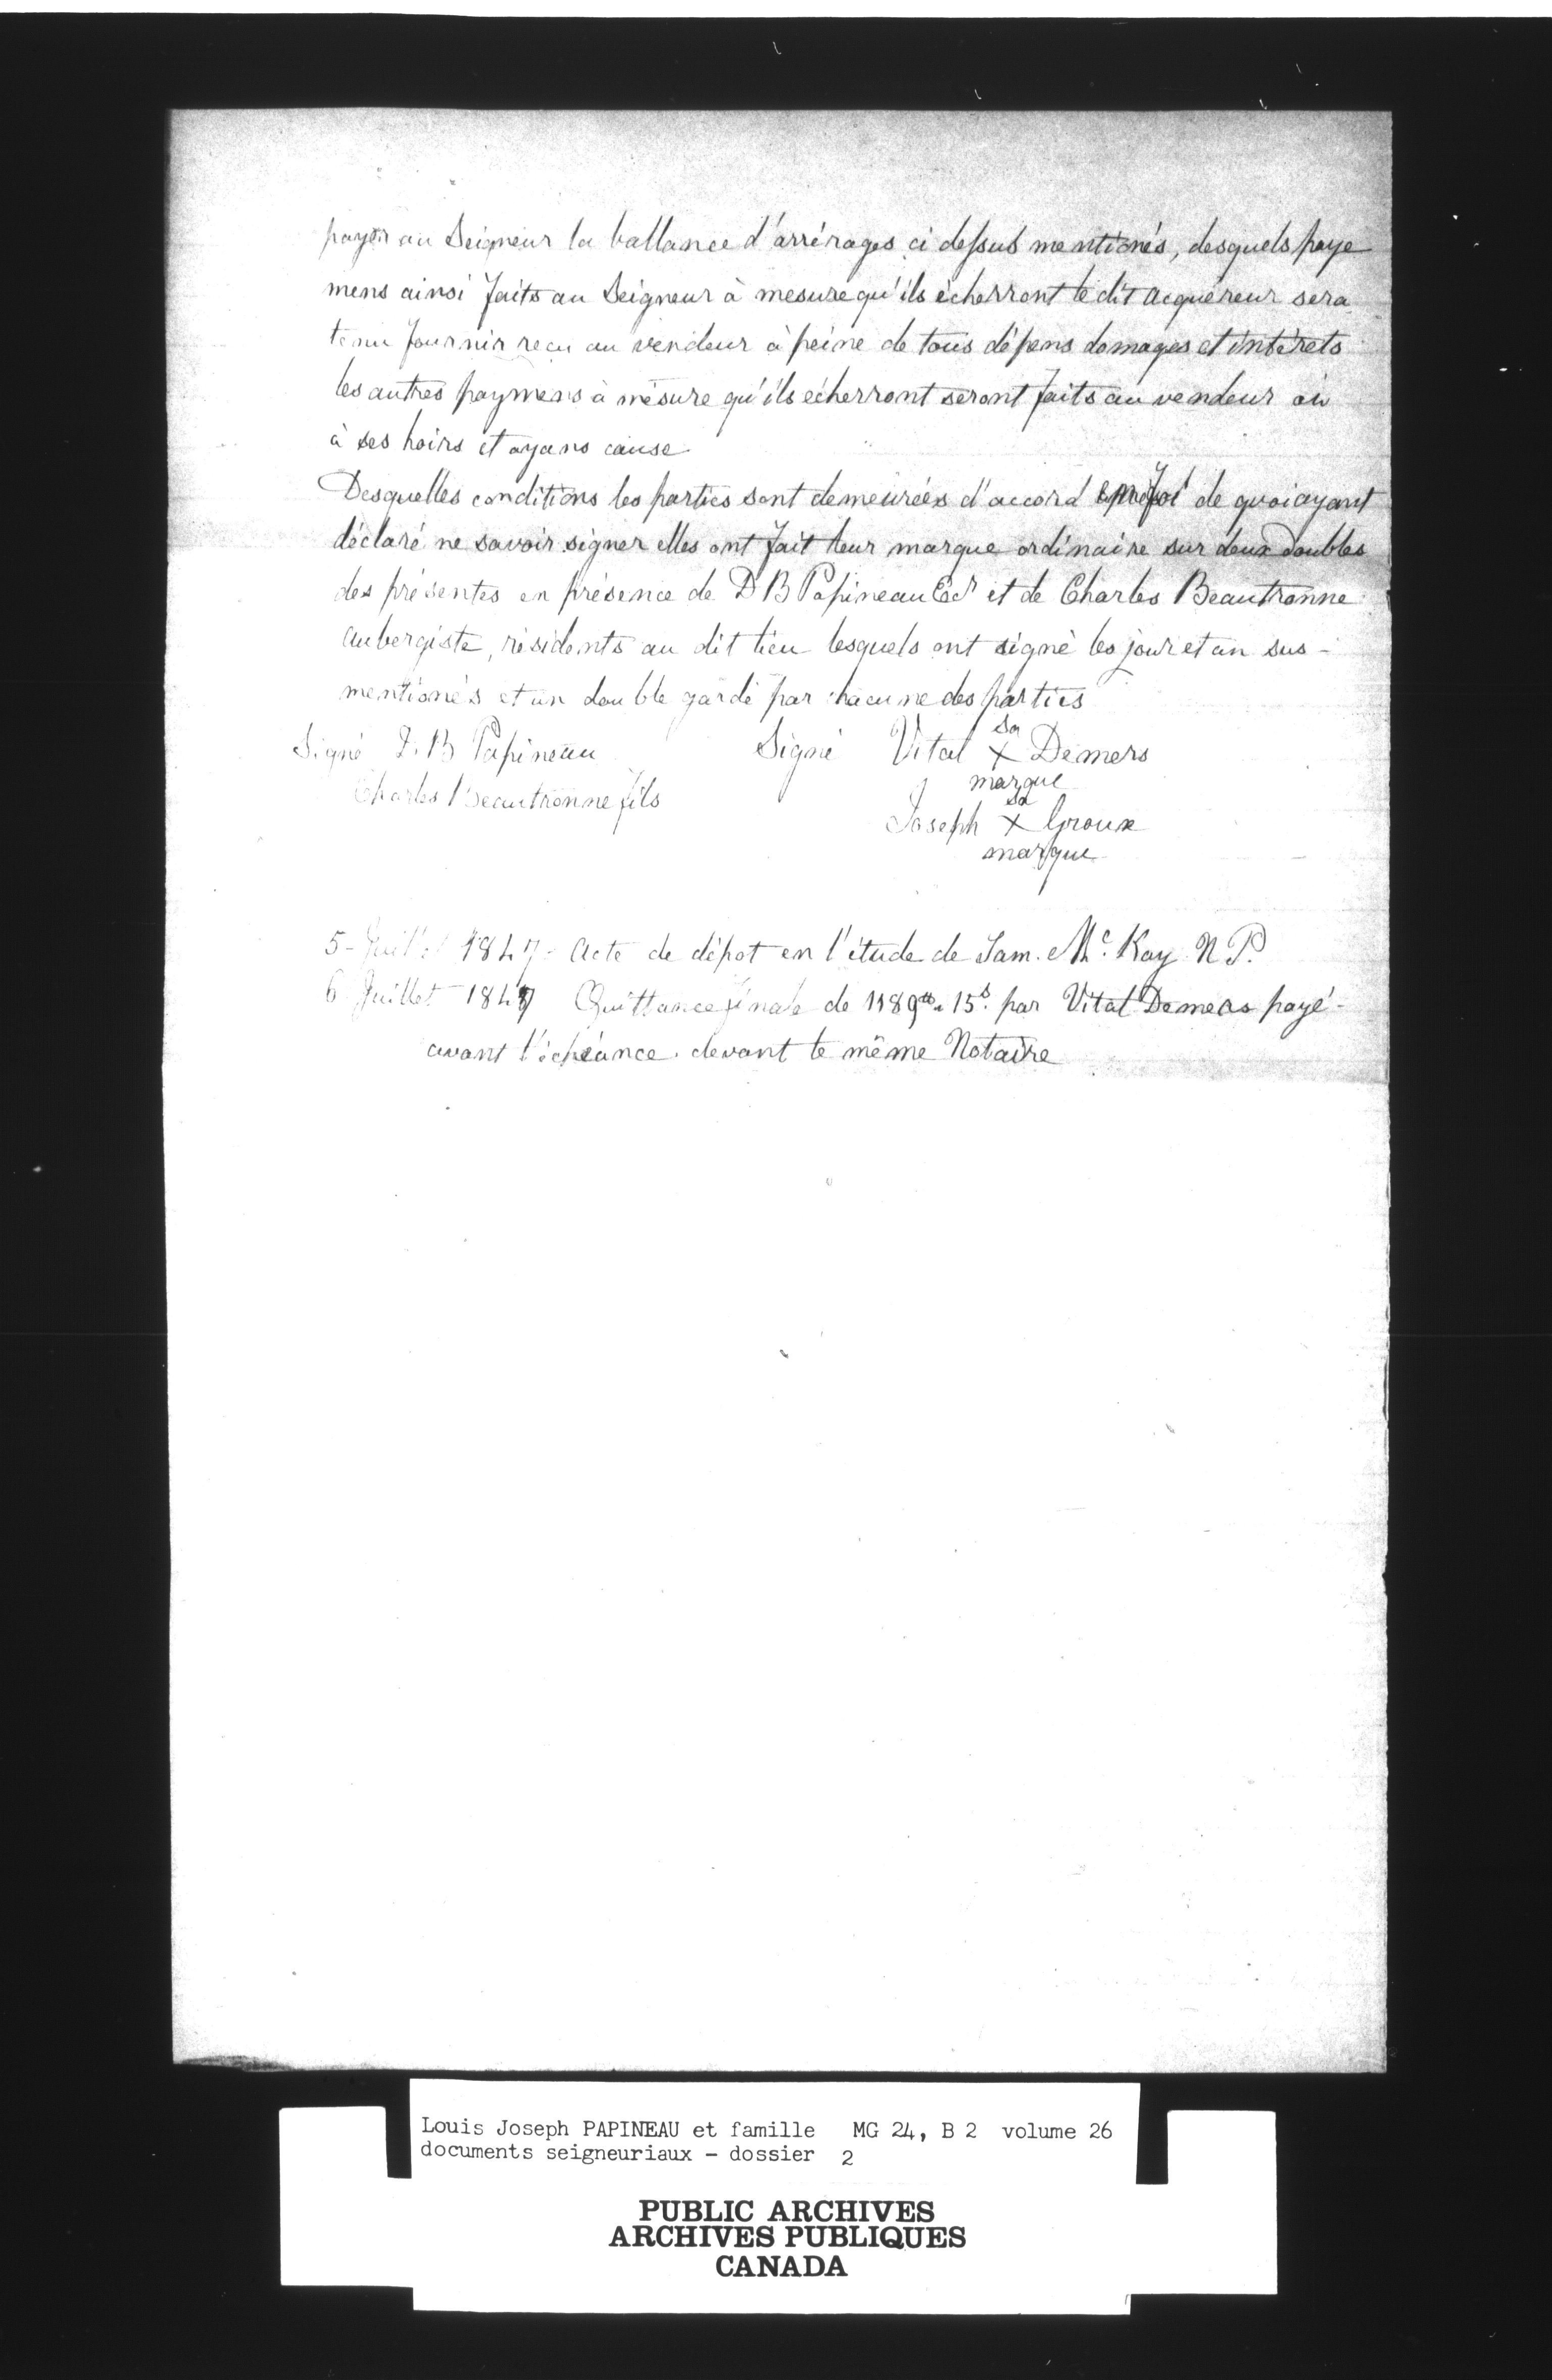 payer au Seigneur la ballance d'arrérages ci dessus mentionés, desquels paye
mens ainsi faits au Seigneur à mesure qu'ils écherront le dit acquéreur sera
tenu fournir reçu au vendeur à peine de tous dépens domages et intérêts
les autres paymens à mesure qu'ils écherront seront faits au vendeur ou
à ses hoirs et ayans cause
Desquelles conditions les parties sont demeurées d'accord en foi de quoi ayant
déclaré ne savoir signer elles ont fait leur marque ordinaire sur deux doubles
des présentes en présence de D B Papineau Ecr et de Charles Beautronne
aubergiste, résidents au dit lieu lesquels ont signé les jour et an sus-
mentionés et un double gardé par chacune des parties
Signé D. B Papineau
Charles Beautronne fils
Signé Vital X Demers
sa
marque
Joseph X Groux
sa
marque
5- Juillet 1847 - Acte de dépot en l'étude de Sam. Mc. Kay N. P.
6 Juillet 1847 Quittance finale de 1189tt. 15s. par Vital Demers payé-
avant l'échéance devant le même Notaire
Louis Joseph PAPINEAU et famille MG 24, B 2 volume 26
documents seigneuriaux - dossier 2
PUBLIC ARCHIVES
ARCHIVES PUBLIQUES
CANADA